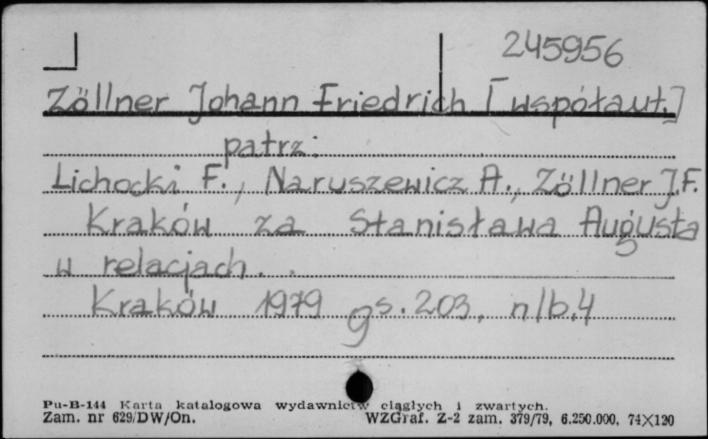 245956
Zöllner Johann Friedrich [współaut.]
patrz:
Lichocki F., Naruszewicz A., Zöllner J.F.
Kraków za Stanisława Augusta
w relacjach...
Kraków 1979 s. 203, nlb. 4
Pu-B-144 Karta katalogowa wydawnictw ciągłych i zwartych.
Zam. nr 629/DW/On. WZGraf. Z-2 zam. 379/79, 6.250.000, 74×120